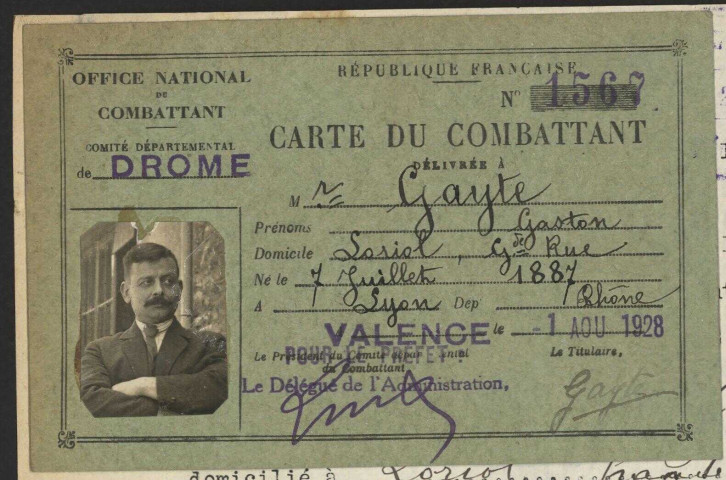 OFFICE NATIONAL
DU
COMBATTANT
COMITÉ DÉPARTEMENTAL
de DROME
RÉPUBLIQUE FRANÇAISE
N° 1567
CARTE DU COMBATTANT
DÉLIVRÉE À
M r Gayte
Prénoms Gaston
Domicile Loriol, Gde Rue
Né le 7 Juillet 1887
A Lyon Dept Rhône
VALENCE le -1 AOU 1928
POUR LE PRÉFET:
Le Président du Comité départemental
du Combattant
Le Titulaire,
Le Délégué de l'Administration,
Gayte
domicilié à Loriol